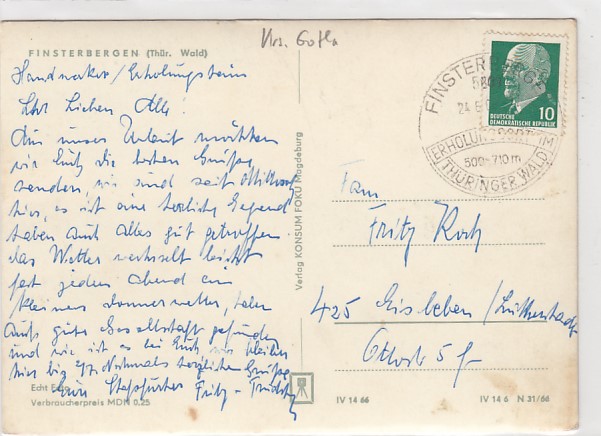 Krs. Gotha
FINSTERBERGEN (Thür. Wald)
Handwerker/Erholungsheim
Ihr Lieben Alle!
Aus unser Urlaub möchten
wir Euch die besten Grüße
senden, wir sind seit Mittwoch
hier, es ist eine herrliche Gegend
haben auch Alles gut getroffen
das Wetter wechselt leicht
fast jeden Abend ein
kleines donnerwetter, haben
auch gute Gesellschaft gefunden
und wie ist es bei Euch wir bleiben
hier bis Nochmals herzliche Grüße
Eure Fritz-
Echt Foto
Verbraucherpreis MDN 0,25
Verlag KONSUM FOKU Magdeburg
FINSTERBERGEN
ERHOLUNGSORT IM
500-710 m
THÜRINGER WALD
10
DEUTSCHE
DEMOKRATISCHE REPUBLIK
Fam
Fritz Koch
425 Eisleben/Lutherstadt
IV 14 66
IV 14 6 N 31/66